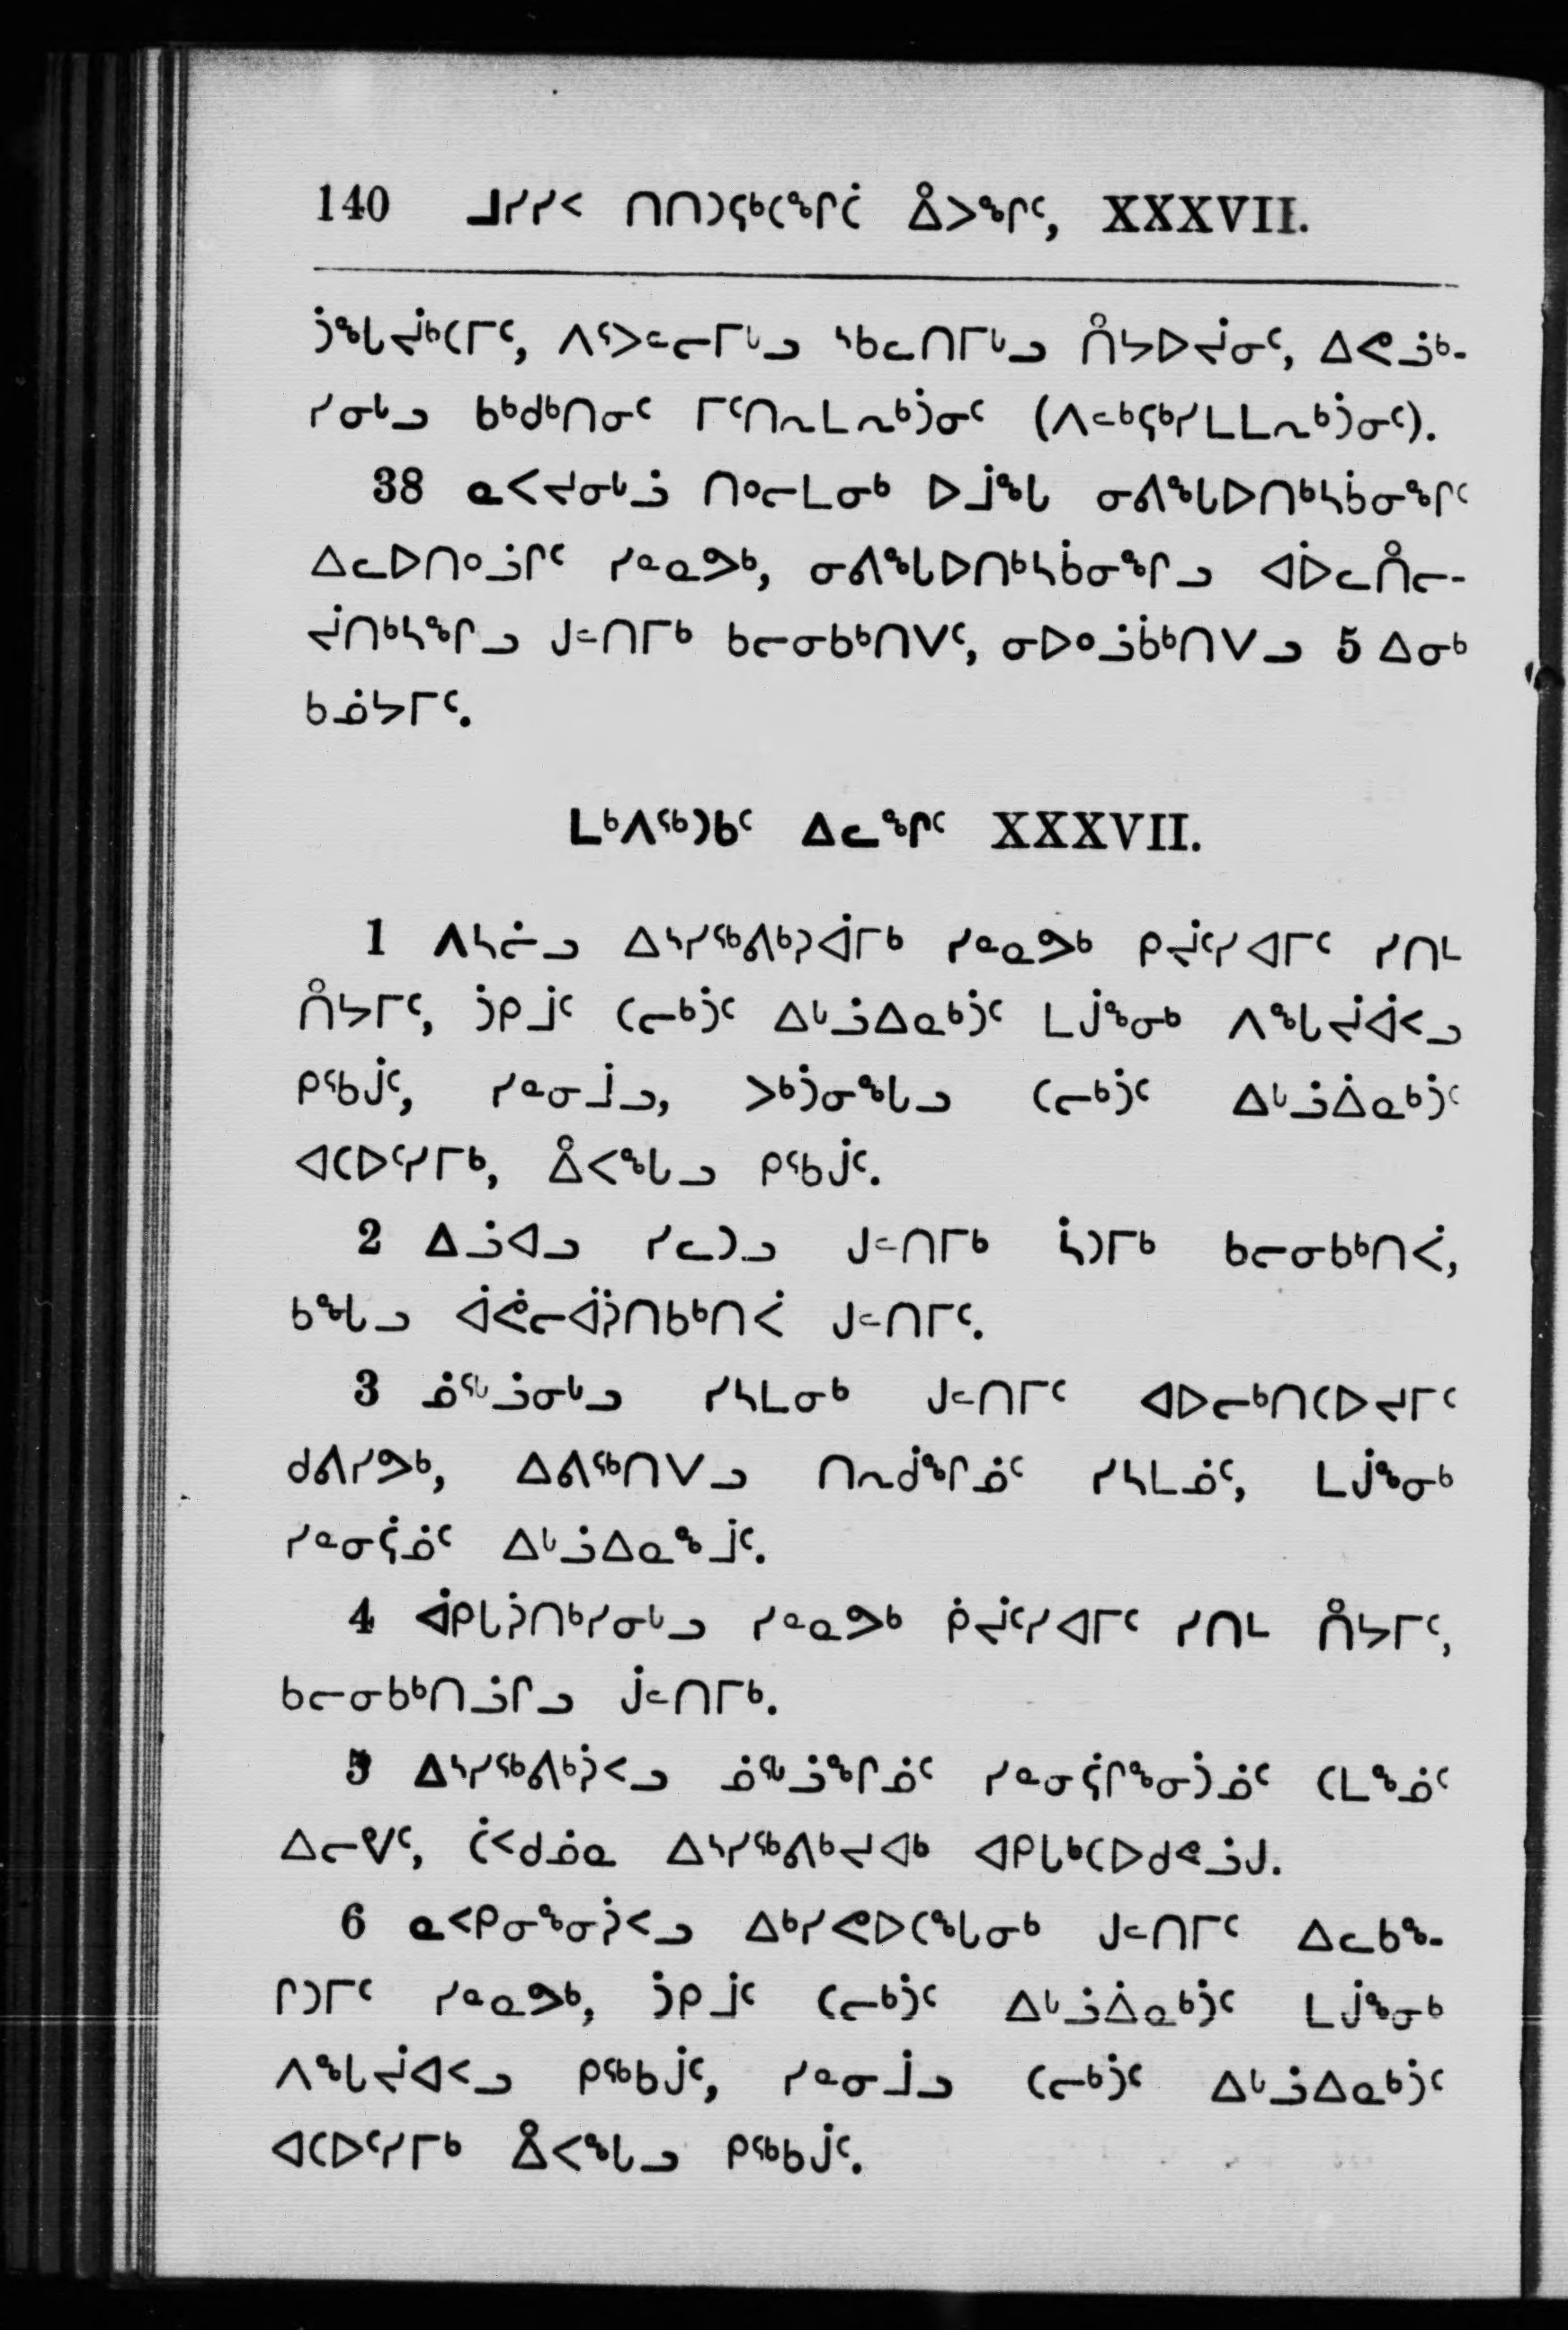 140 ᒧᓯᓯᑉ ᑎᑎᑐᕋᒃᑕᖓᒌᑖ ᐃ̊ᐳᖕᒋᑦ, XXXVII.
ᑑᖓᔫᒃᑕᒥᑦ, ᐱᕐᐳᓪᓕᒥᒡᓗ ᔅᑲᓚᑎᒥᒡᓗ ᑎ̊ᔭᐅᔫᓂᑦ, ᐃᕙᓘᒃ-
ᓯᓂᒡᓗ ᑲᒃᑯᒃᑎᓂᑦ ᒥᑦᑎᖕᒪᖕᒃᑑᓂᑦ (ᐱᓪᒃᕋᒃᓯᒪᒪᖕᒃᑑᓂᑦ).
38 ᓇᐸᔪᓂᒡᓘ ᑎᐤᓕᒪᓂᒃ ᐅᒨᖓ ᓂᕕᖓᐅᑎᒃᓴᑳᓂᖕᒋᑦ
ᐃᓚᐅᑎᐤᓘᒋᑦ ᓯᓐᓇᕗᒃ, ᓂᕕᖓᐅᑎᒃᓴᑳᓂᖕᒋᓗ ᐊᐆᓚᑎ̊ᓕ-
ᔫᑎᒃᓴᖕᒋᓗ ᒍᓪᑎᒥᒃ ᑲᓕᓂᑲᒃᑎᐯᑦ, ᓂᐅᐤᓘᑳᒃᑎᐯᓗ 5 ᐃᓂᒃ
ᑲᓅᔭᒥᑦ.
ᒪᒃᐱᖅᑐᑲᑦ ᐃᓚᖕᒋᑦ XXXVII.
1 ᐱᓴᓖᓗ ᐃᔅᓯᖅᕕᒃᓱᐋᒥᒃ ᓯᓐᓇᕗᒃ ᑭᔫᑦᓯᐊᒥᑦ ᓯᑎᒻ
ᑎ̊ᔭᒥᑦ, ᑑᑭᒨᑦ ᑕᓕᒃᑑᑦ ᐃᒡᓘᐃᓇᒃᑑᑦ ᒪᒎᖕᓂᒃ ᐱᖓᔫᐋᑉᓗ
ᑭᕐᑲᒎᑦ, ᓯᓐᓂᒨᓗ, ᐳᒃᑑᓂᖓᓗ ᑕᓕᒃᑑᑦ ᐃᒡᓘᐄᓇᒃᑑᑦ
ᐊᑕᐅᑦᓯᒥᒃ, ᐃ̊ᐸᖓᓗ ᑭᕐᑲᒎᑦ.
2 ᐃᓘᐊᓗ ᓯᓚᑐᓗ ᒍᓪᑎᒥᒃ ᓵᑐᒥᒃ ᑲᓕᓂᑲᒃᑎᐹ,
ᑲᖓᓗ ᐋᕚᓕᐋᓲᑎᑲᒃᑎᐹ ᒍᓪᑎᒥᑦ.
3 ᓅᕐᒡᓘᓂᒡᓗ ᓯᓴᒪᓂᒃ ᒍᓪᑎᒥᑦ ᐊᐅᓕᒃᑎᑕᐅᔪᒥᑦ
ᑯᕕᓯᕗᒃ, ᐃᕕᖅᑎᐯᓗ ᑎᖕᑰᖕᒋᓅᑦ ᓯᓴᒪᓅᑦ, ᒪᒎᖕᓂᒃ
ᓯᓐᓂᕌᓅᑦ ᐃᒡᓘᐃᓇᖕᒨᑦ.
4 ᐋᑭᒐᓲᑎᒃᓯᓂᒡᓗ ᓯᓐᓇᕗᒃ ᑮᔫᑦᓯᐊᒥᑦ ᓯᑎᒻ ᑎ̊ᔭᒥᑦ,
ᑲᓕᓂᑲᒃᑎᓘᒋᓗ ᒎᓪᑎᒥᒃ.
5 ᐃᔅᓯᖅᕕᒃᓲᑉᓗ ᓅᕐᒡᓘᖕᒋᓅᑦ ᓯᓐᓂᕌᒋᖕᓂᑑᓅᑦ ᑕᒪᖕᓅᑦ
ᐃᓕᕓᑦ, ᑖᑉᑯᓅᓇ ᐃᔅᓯᖅᕕᒃᔪᐊᒃ ᐊᑭᒐᒃᑕᐅᑯᕝᓘᒍ.
6 ᓇᑉᑭᓂᖕᓂᓲᑉᓗ ᐃᒃᓯᕙᐅᑕᖓᓂᒃ ᒍᓪᑎᒥᑦ ᐃᓚᑲᖕ-
ᒋᑐᒥᑦ ᓯᓐᓇᕗᒃ, ᑑᑭᒨᑦ ᑕᓕᒃᑑᑦ ᐃᒡᓘᐄᓇᒃᑑᑦ ᒪᒎᖕᓂᒃ
ᐱᖓᔫᐊᑉᓗ ᑭᖅᑲᒎᑦ, ᓯᓐᓂᒨᓗ ᑕᓕᒃᑑᑦ ᐃᒡᓘᐃᓇᒃᑑᑦ
ᐊᑕᐅᑦᓯᒥᒃ ᐃ̊ᐸᖓᓗ ᑭᖅᑲᒎᑦ.